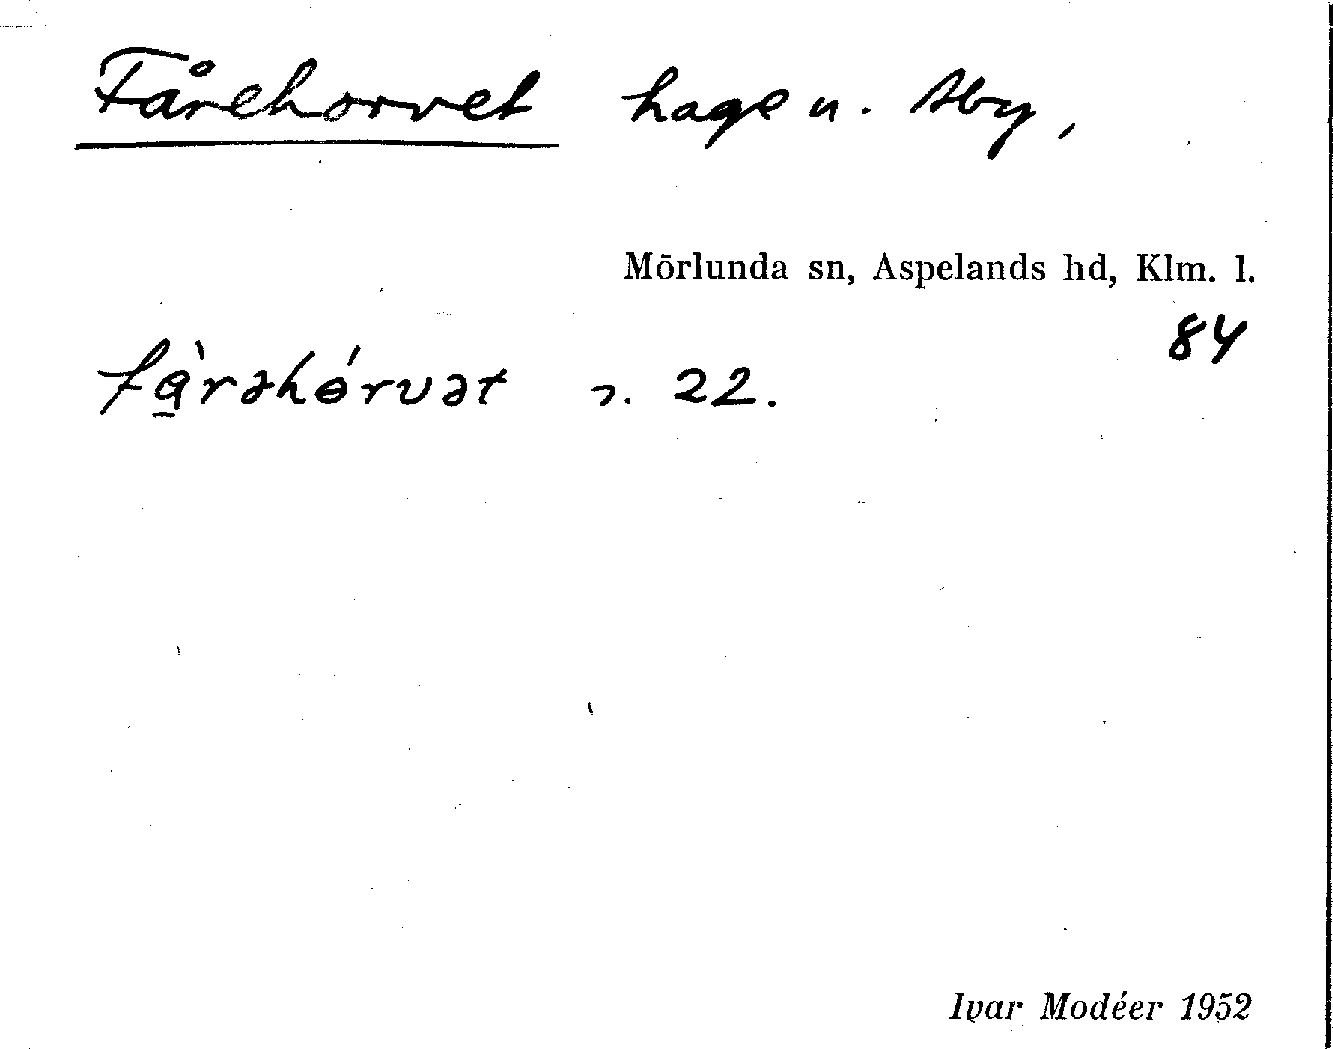 Fårehorvet hage u. Åby,
Mörlunda sn, Aspelands hd, Klm. l.
84
22.
Ivar Modéer 1952